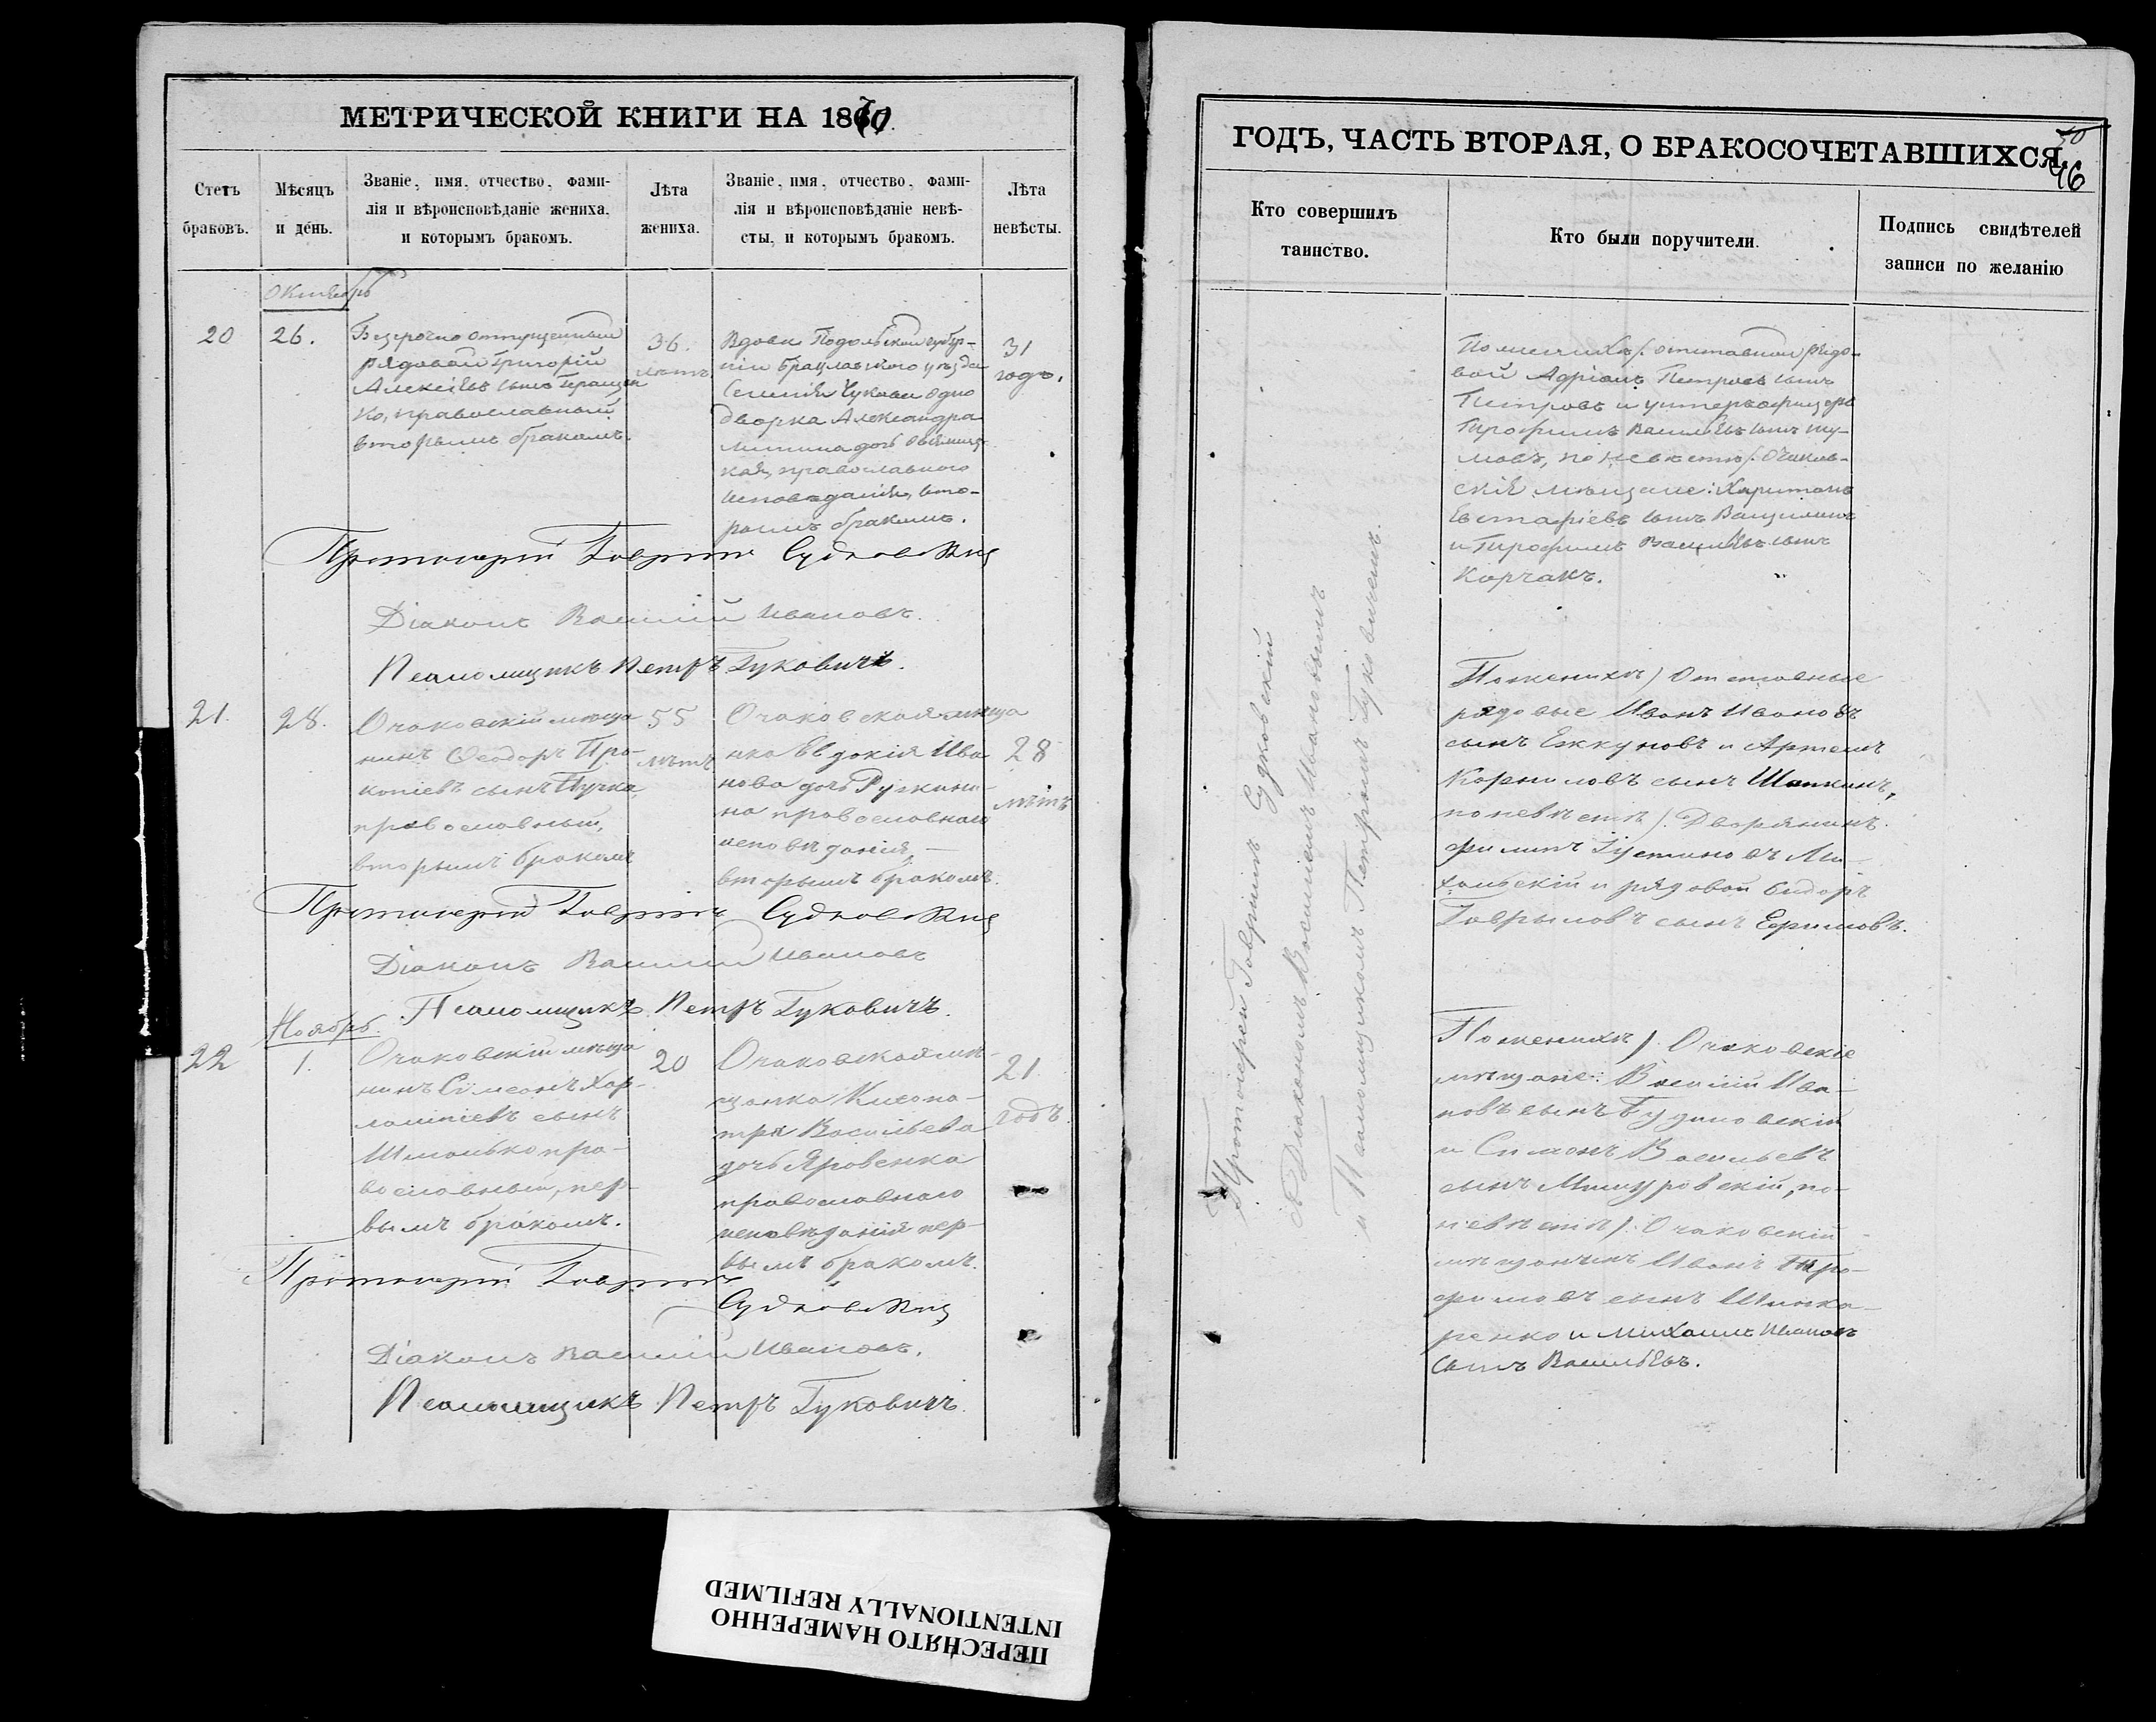 МЕТРИЧЕСКОЙ КНИГИ НА 1870
Счетъ
браковъ.
Мѣсяцъ
и день.
Званіе, имя, отчество, фами-
лія и вѣроисповѣданіе жениха,
и которымъ бракомъ.
Лѣта
жениха.
Званіе, имя, отчество, фами-
лія и вѣроисповѣданіе невѣ-
сты, и которымъ бракомъ.
Лѣта
невѣсты.
Октябрь
20
26.
Безсрочно отпущенный
рядовой Григорій
Алексіевъ сынъ
ко, православный
вторымъ бракомъ.
36.
лѣтъ
Вдова Подольской губер-
ніи Брацлавского уѣзда
Селенія одно
дворка Александра
дочь
кая, православного
исповѣданія, вто-
рымъ бракомъ.
31
годъ.
Протоіерей Гавріилъ Судковскій
Діаконъ Василій Ивановъ.
Псаломщикъ Петръ Гуковичъ.
21.
28.
Очаковскій мѣща
нинъ Ѳеодоръ Про-
копіевъ сынъ Пучка,
православный,
вторымъ бракомъ
55
лѣтъ
Очаковская мѣща
нка Евдокія Ива
нова дочь
на православного
исповѣданія, —
вторымъ бракомъ.
28
лѣтъ
Протоіерей Гавріилъ Судковскій
Діаконъ Василій Ивановъ
Псаломщикъ Петръ Гуковичъ.
Ноябрь.
22
1.
Очаковскій мѣща
нинъ Сѵмеонъ Хар-
лампіевъ сынъ
пра-
вославный, пер-
вымъ бракомъ.
20
Очаковская мѣ-
щанка Клеопа-
тра Васильева
дочь Яровенка
православного
исповѣданія пер-
вымъ бракомъ.
21.
годъ.
Протоіерей Гавріилъ
Судковскій
Діаконъ Василій Ивановъ.
Псаломщикъ Петръ Гуковичъ.
ГОДЪ, ЧАСТЬ ВТОРАЯ, О БРАКОСОЧЕТАВШИХСЯ.
50
46
Кто совершилъ
таинство.
Кто были поручители.
Подпись свидѣтелей
записи по желанію
Протоіерей Гавріилъ Судковскій
съ Діакономъ Василіемъ Ивановымъ
и Псаломщикомъ Петромъ Гуковичемъ.
По женихѣ/: отставной рядо-
вой Адріанъ Петровъ сынъ
Петровъ и унтерофицеръ
Трофимъ Васильевъ сынъ Шу-
мовъ, по невѣстѣ/: Очаков-
скіе мѣщане: Харитонъ
Евстафіевъ сынъ
и Трофимъ Васильевъ сынъ
Корчакъ.
По женихѣ) Отставные
рядовые Иванъ Ивановъ
сынъ и Артемъ
Корниловъ сынъ Шапкинъ,
по невѣстѣ). Дворянинъ
Филипъ Іустиновъ Ми-
хальскій и рядовой Сидоръ
Гавриловъ сынъ Ефимовъ.
По женихѣ). Очаковскіе
мѣщане: Василій Ива-
новъ сынъ Будиновскій
и Симонъ Васильевъ
сынъ по-
невѣстѣ). Очаковскій
мѣщанинъ Иванъ Тро-
фимовъ сынъ Шинка-
ренко и Михаилъ Ивановъ
сынъ Васильевъ.
ПЕРЕСНЯТО НАМЕРЕННО
INTENTIONALLY REFILMED